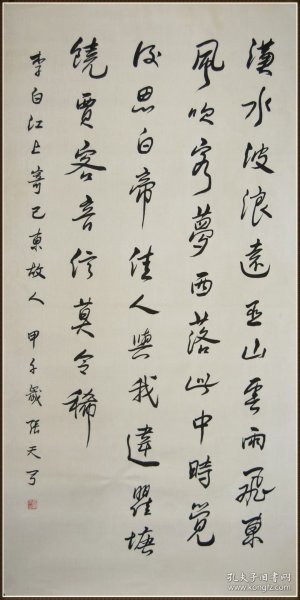 漢水波浪遠巫山雲雨飛東
風吹客夢西落此中時覺
後思白帝佳人與我違瞿塘
饒賈客音信莫令稀
李白江上寄巴東故人 甲午歲 張天写
孔夫子旧书网